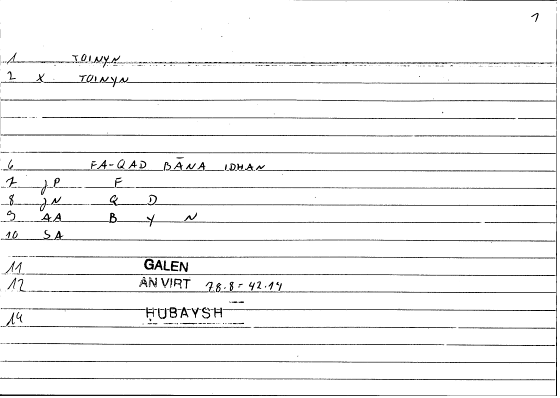 1
1 TOINYN
2 X TOINYN
6 FA-QAD BĀNA IDHAN
7 JP F
8 JN Q D
9 AA B Y N
10 SA
11 GALEN
12 AN VIRT 78.8 = 42.14
14 ḤUBAYSH